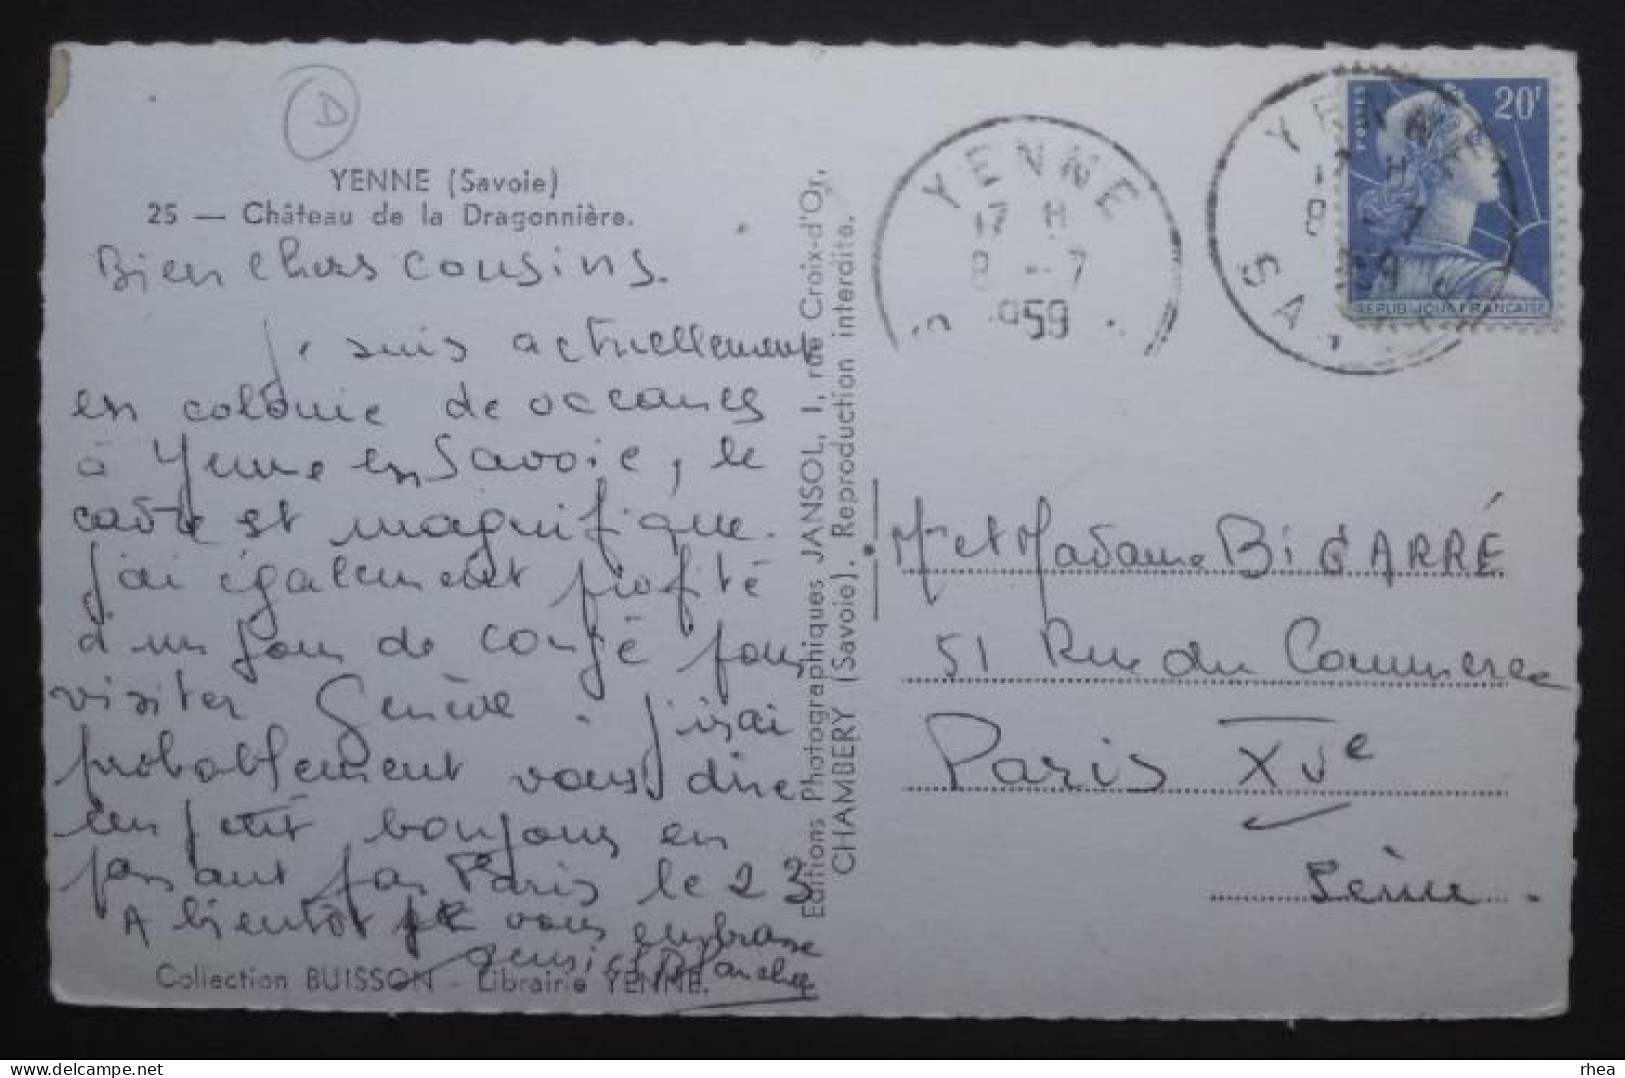 D
YENNE (Savoie)
25 — Château de la Dragonnière.
Bien chers cousins.
Je suis actuellement
en colonie de vacances
à Yenne en Savoie, le
cadre est magnifique.
J'ai également profité
d'un jour de congé pour
visiter Genève. J'irai
probablement vous dire
un petit bonjour en
passant par Paris le 23
A bientôt je vous embrasse
Collection BUISSON - Librairie YENNE.
Editions Photographiques JANSOL, 1, rue Croix-d'Or,
CHAMBERY (Savoie). Reproduction interdite.
YENNE
17 H
8 - 7
1959
YENNE
17 H
8 - 7
SA
POSTES
20F
REPUBLIQUE FRANÇAISE
Mr et Madame BIGARRÉ
51 Rue du Commerce
Paris XVe
Seine.
delcampe.net
rhea